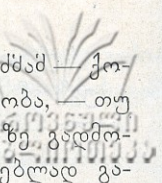 ძმამ — ქო-
ობა, — თუ
ზე გადმო-
ებლად გა-